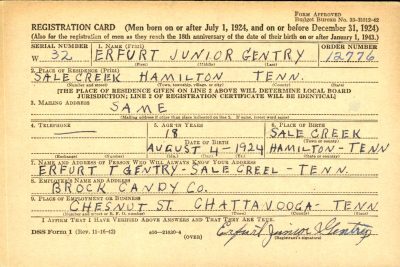 FORM APPROVED
Budget Bureau No. 33-R012-42
REGISTRATION CARD (Men born on or after July 1, 1924, and on or before December 31, 1924)
(Also for the registration of men as they reach the 18th anniversary of the date of their birth on or after January 1, 1943.)
SERIAL NUMBER 1. NAME (Print) ORDER NUMBER
W 32 ERFURT JUNIOR GENTRY 12776
(First) (Middle) (Last)
2. PLACE OF RESIDENCE (Print)
SALE CREEK HAMILTON TENN.
(Number and street) (Town, township, village, or city) (County) (State)
[THE PLACE OF RESIDENCE GIVEN ON LINE 2 ABOVE WILL DETERMINE LOCAL BOARD
JURISDICTION; LINE 2 OF REGISTRATION CERTIFICATE WILL BE IDENTICAL]
3. MAILING ADDRESS
SAME
(Mailing address if other than place indicated on line 2. If same, insert word same)
4. TELEPHONE 5. AGE IN YEARS 6. PLACE OF BIRTH
— 18 SALE CREEK
DATE OF BIRTH (Town or county)
AUGUST 4-1924 HAMILTON-TENN
(Exchange) (Number) (Mo.) (Day) (Yr.) (State or country)
7. NAME AND ADDRESS OF PERSON WHO WILL ALWAYS KNOW YOUR ADDRESS
ERFURT T GENTRY-SALE CREEL-TENN.
8. EMPLOYER'S NAME AND ADDRESS
BROCK CANDY CO.
9. PLACE OF EMPLOYMENT OR BUSINESS
CHESNUT ST. CHATTANOOGA-TENN
(Number and street or R. F. D. number) (Town) (County) (State)
I AFFIRM THAT I HAVE VERIFIED ABOVE ANSWERS AND THAT THEY ARE TRUE.
DSS Form 1 (Rev. 11-16-42) (OVER) Erfurt Junior Gentry
(Registrant's signature)